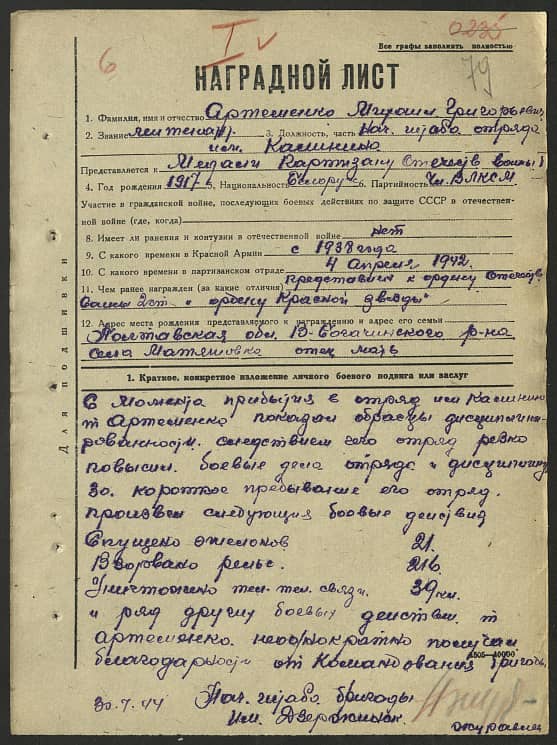 0235
I v
6
79
Все графы заполнять полностью
НАГРАДНОЙ ЛИСТ
1. Фамилия, имя и отчество Артеменко Михаил Григорьевич
2. Звание лейтенант 3. Должность, часть Нач. штаба отряда
им. Калинина
Представляется к Медали Партизану Отечеств войны I
4. Год рождения 1917 г. 5. Национальность Белорус 6. Партийность Чл. ВЛКСМ
Участие в гражданской войне, последующих боевых действиях по защите СССР в отечествен-
ной войне (где, когда)
8. Имеет ли ранения и контузии в отечественной войне нет
9. С какого времени в Красной Армии с 1938 года
10. С какого времени в партизанском отряде 4 Апреля 1942.
11. Чем ранее награжден (за какие отличия) Представлен к ордену Отечеств
Войны 2 ст и ордену Красной звезды
12. Адрес места рождения представляемого к награждению и адрес его семьи
Полтавская обл. В-Богачинского р-на
села Матяшовка отец мать
Для подшивки
1. Краткое, конкретное изложение личного боевого подвига или заслуг
С момента прибытия в отряд им Калинина
т Артеменко показал образцы дисциплини-
рованности. следствием чего отряд резко
повысил. боевые дела отряда и дисциплину
За. короткое пребывание его отряд.
произвел следующия боевые действия
Спущено эшелонов 21.
Взорвано рельс. 216.
Уничтожено тел. тел. связи. 39 км.
и ряд других боевых действий. т
артеменко. неоднократно получал
благодарности от Командования бригады.
4505—10000
30.7.44 Нач. штаба бригады
им. Дзержинск.
Журавлев